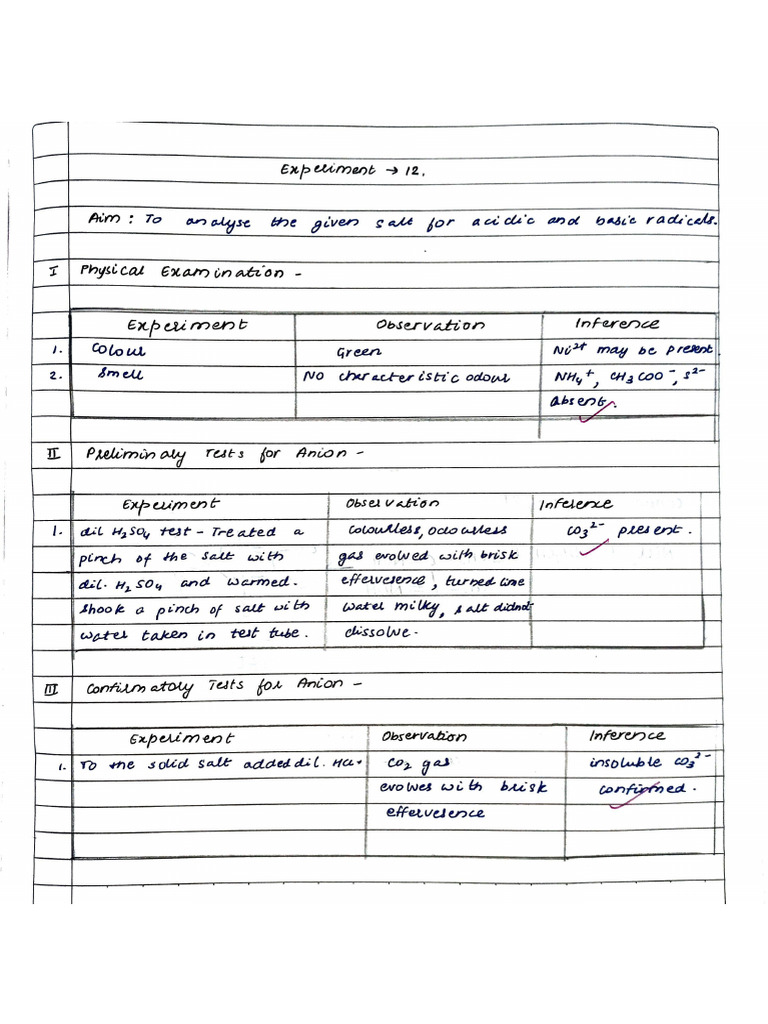 Experiment → 12.
Aim : To analyse the given salt for acidic and basic radicals.
I Physical Examination -
Experiment Observation Inference
1. Colour Green Ni2+ may be present.
2. Smell No characteristic odour NH4+, CH3COO-, S2-
absent.
II Preliminary Tests for Anion -
Experiment Observation Inference
1. dil H2SO4 test - Treated a colourless, odourless CO3 2- present.
pinch of the salt with gas evolved with brisk
dil. H2SO4 and warmed. effervesence, turned lime
shook a pinch of salt with water milky, salt didnot
water taken in test tube. dissolve.
III Confirmatory Tests for Anion -
Experiment Observation Inference
1. To the solid salt added dil. HCl. CO2 gas insoluble CO3 2-
evolves with brisk confirmed.
effervesence